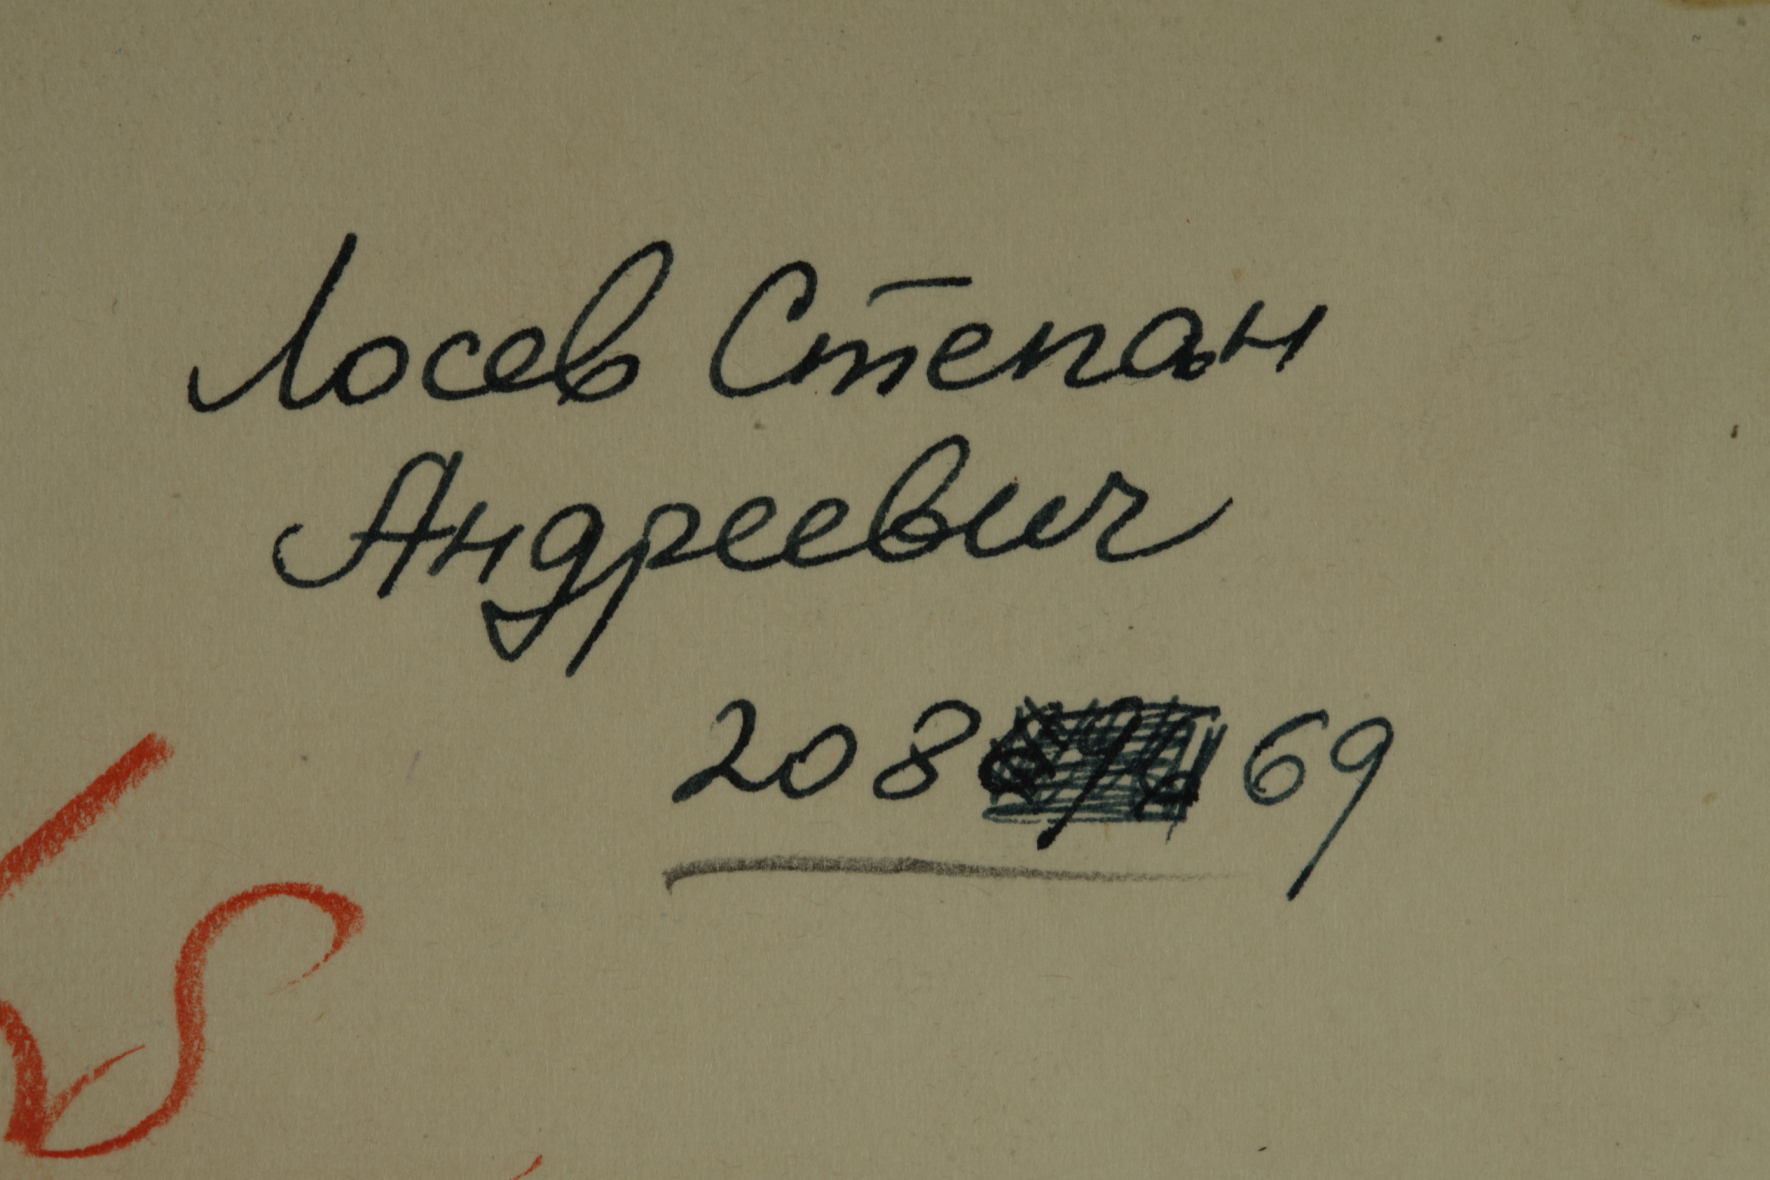 Лосев Степан
Андреевич
208 69